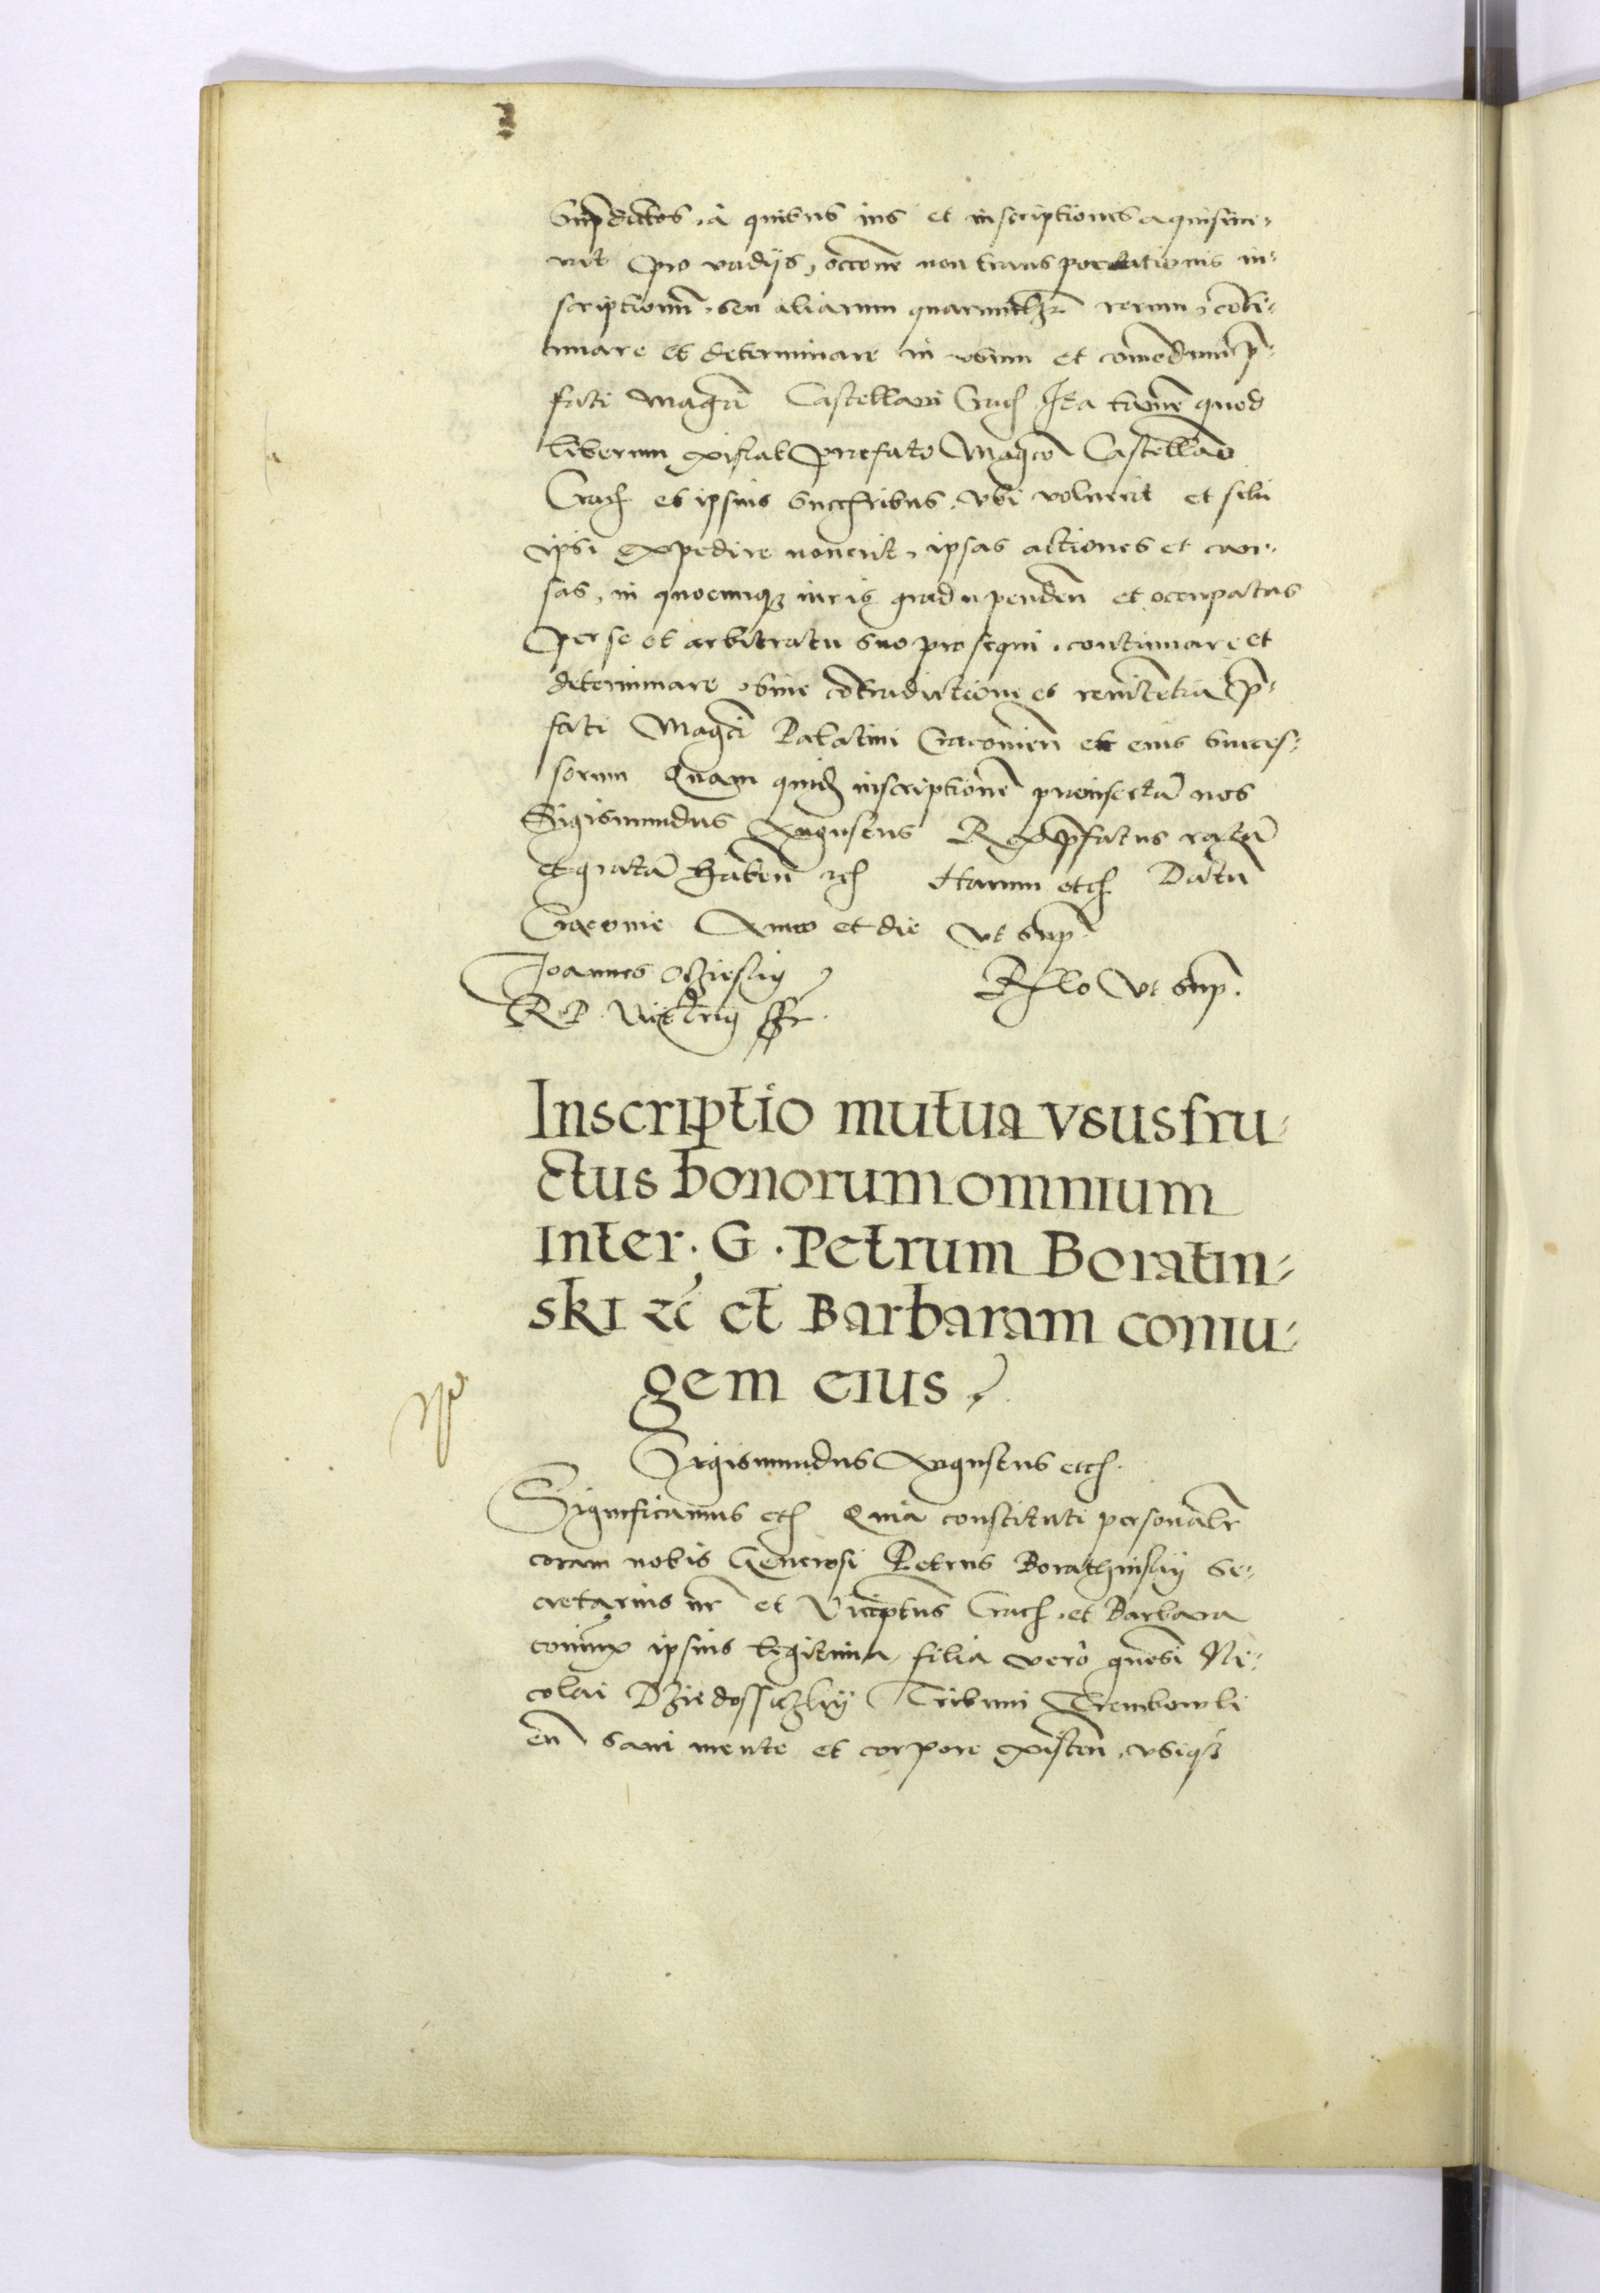 Suprdictos, à quibus ius et inscriptiones aquisiue-
rit pro vadijs, occone non transportationis in-
scriptionum, seu aliarum quarumlibet rerum, conti-
nuare et determinare in vsum et comodum p-
fati Magci Castellani Crach Ita tamen quod
liberum existat prefato Magco Castellano
Crach et ipsius succribus, vbi voluerit et sibi
ipsi expedire nouerit, ipsas actiones et cau-
sas, in quocunque iuris gradu penden et occupatus
per se et arbitratu suo prosequi, continuare et
determinare, sine contradictione et renitentia p-
fati Magci Palatini Cracouien et eius succes-
sorum Quam quid inscriptionem preinsertam nos
Sigismundus Augustus Rex pfatus ratam
et gratam haben etc Harum etc Datum
Cracouie Anno et die vt supra
Joannes Oczieskij Rlo vt supra.
R P Vicecancrij ssr.
Inscriptio mutua vsusfru-
ctus bonorum omnium
inter . G . Petrum Boratin-
ski etc et Barbaram coniu-
gem eius
Sigismundus Augustus etc.
Significamus etc Quia constituti personaliter
coram nobis Generosi Petrus Borathinskij Se-
cretarius nr et Viceptus Crach, et Barbara
coniunx ipsius legitima, filia verò gnosi Ni-
colai Dziedossiczkij Tribuni Trembowli
en sani mente et corpore existen, vsique